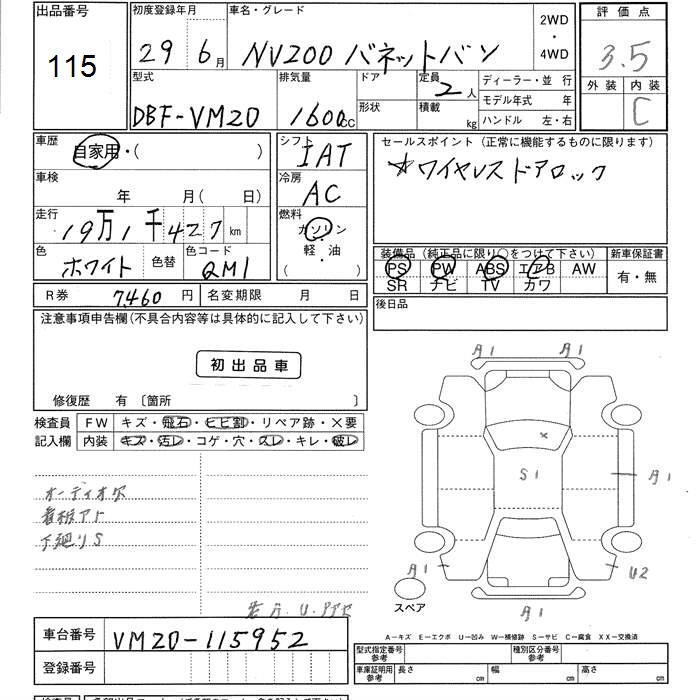 出品番号
115
初度登録年月
29 6月
車名・グレード
NV200 バネットバン
2WD
・
4WD
評価点
3.5
外装 内装
C
型式
DBF-VM20
排気量
1600cc
ドア
形状
定員
2人
積載
kg
ディーラー・並 行
モデル年式 年
ハンドル 左・右
車歴
自家用・( )
シフト
IAT
車検
年 月(日)
冷房
AC
走行
19万1千427km
燃料
ガソリン
・
軽・油
( )
色
ホワイト
色替
色コード
QM1
セールスポイント(正常に機能するものに限ります)
☆ワイヤレスドアロック
装備品(純正品に限り○をつけて下さい)
PS PW ABS エアB AW
SR ナビ TV カワ
新車保証書
有・無
R券 7,460円
名変期限 月 日
後日品
注意事項申告欄(不具合内容等は具体的に記入して下さい)
初出品車
修復歴 有〔箇所 〕
検査員 FW キズ・飛石・ヒビ割・リペア跡・×要
記入欄 内装 キズ・汚レ・コゲ・穴・スレ・キレ・破レ
オーディオ欠
看板アト
下廻りS
A1 A1
S1
A1
A1 U2
A1
スペア
A−キズ E−エクボ U−凹み W−補修跡 S−サビ C−腐食 XX−交換済
車台番号 VM20-115952
登録番号
型式指定番号
参考
種別区分番号
参考
車庫証明用
参考
長さ cm 幅 cm 高さ cm